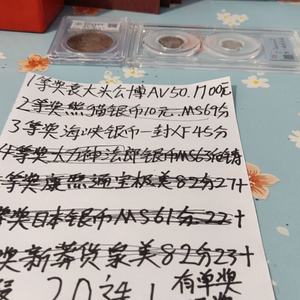 1等奖袁大头公博AV50.1700元
2等奖熊猫银币10元.MS69分
3等奖海峡银币一封XF45分
4等奖大刀神法郎银币MS63
等奖康熙通宝极美82分27十
等奖日本银币MS61分22十
奖新莽货泉美82分23十
20
有单奖
奖